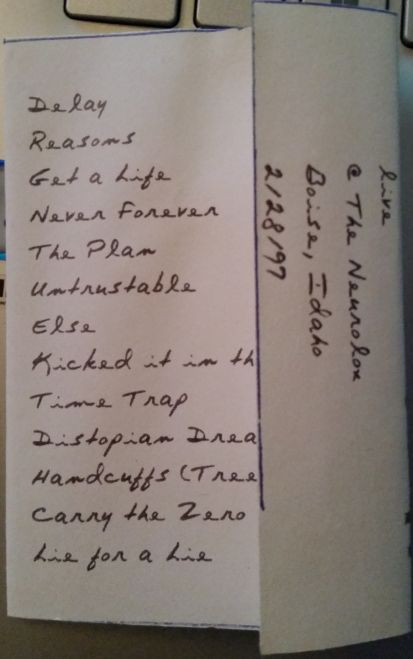 Delay
Reasons
Get a Life
Never Forever
The Plan
Untrustable
Else
Kicked it in th
Time Trap
Distopian Drea
Handcuffs (Tree
Carry the Zero
Lie for a Lie
live
@ The Neurolux
Boise, Idaho
2/28/97